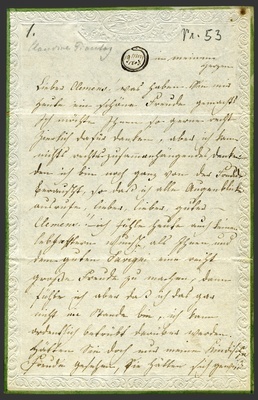 1.
Nr. 53
an meinem
Lieber Clemens, was haben Sie mir
heute eine schöne Freude gemacht
Ich möchte Ihnen so gerne recht
herzlich dafür danken, aber ich kann
nichts recht zusammenhängendes denken
denn ich bin noch ganz von der Freude
berauscht, so daß ich alle Augenblick
ausrufe, lieber, lieber, guter
Clemens, ich fühle heute auch den
lebhaftesten Wunsch, als Ihnen und
dem guten eine recht
große Freude zu machen, dann
fühle ich aber daß ich das gar
nicht im Stande bin, ich kann
ordentlich betrübt darüber werden.
Hätten Sie doch nur meine kindische
Freude gesehen, Sie hätten sich gewiß